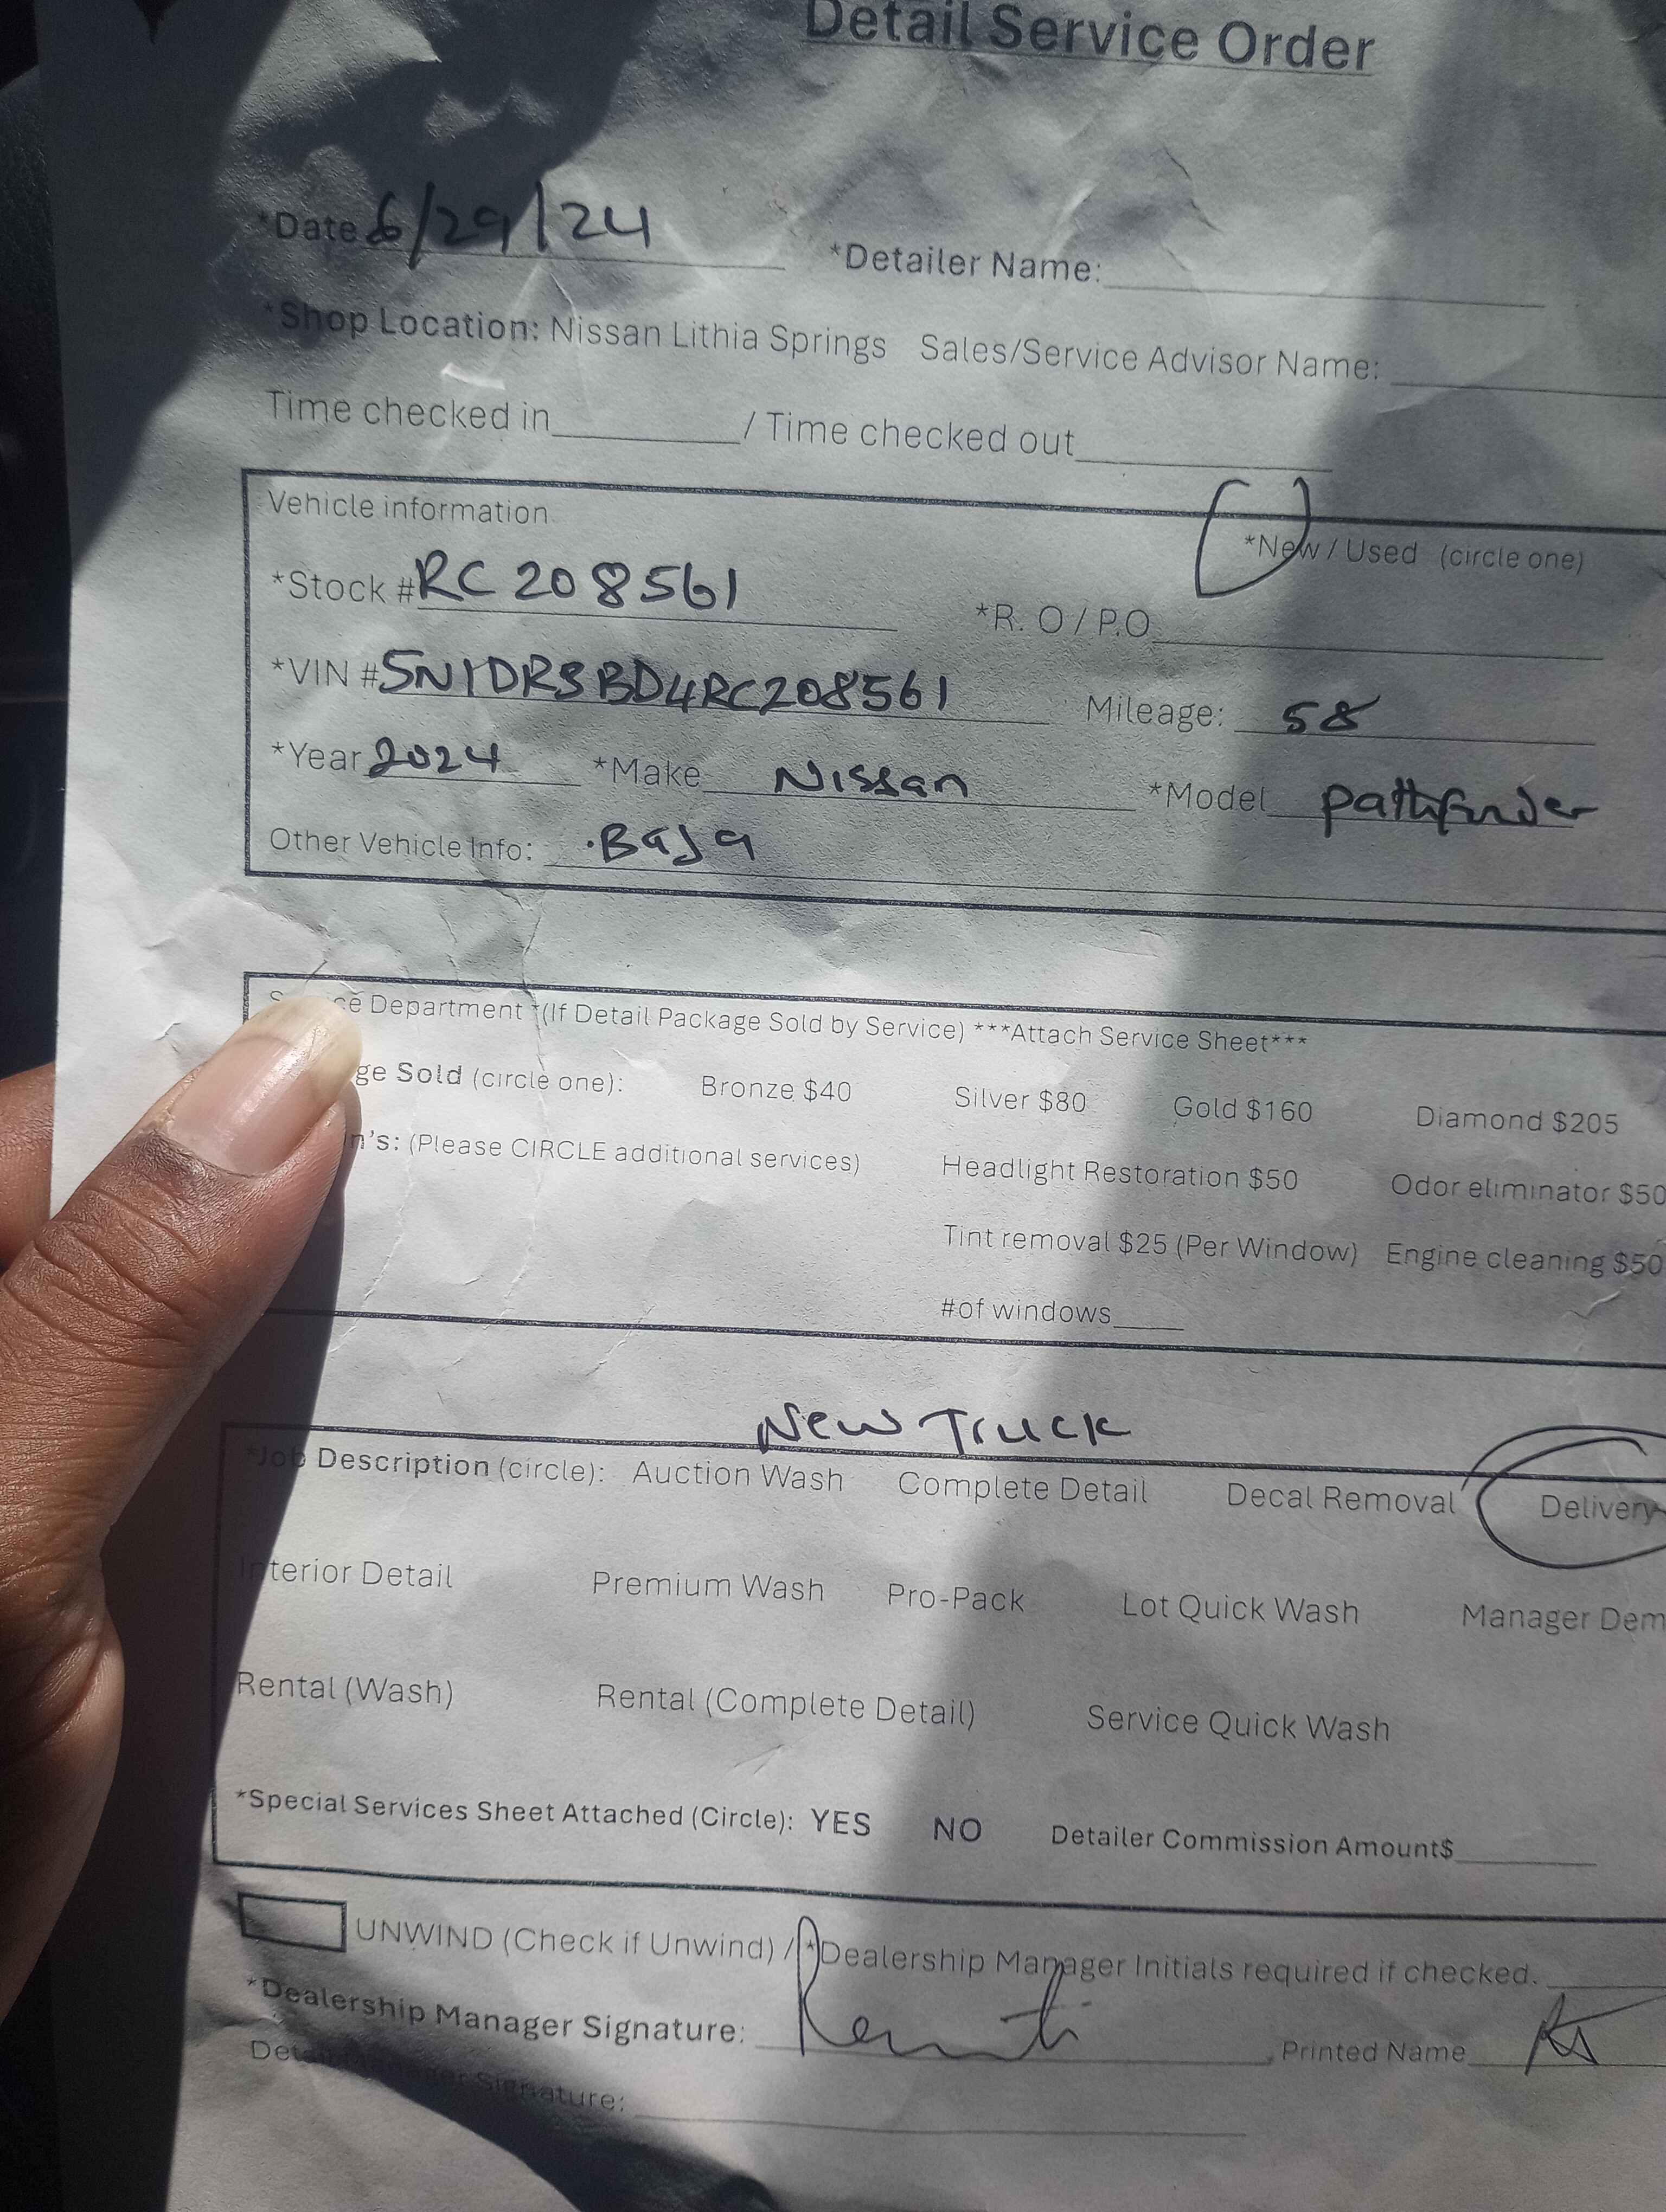 Detail Service Order
*Date 6/29/24 *Detailer Name:
*Shop Location: Nissan Lithia Springs Sales/Service Advisor Name:
Time checked in / Time checked out
Vehicle information
*New / Used (circle one)
*Stock # RC 208561 *R. O / P.O
*VIN # 5N1DR3BD4RC208561 Mileage: 58
*Year 2024 *Make Nissan *Model pathfinder
Other Vehicle Info: Baja
Department *(If Detail Package Sold by Service) ***Attach Service Sheet***
Sold (circle one): Bronze $40 Silver $80 Gold $160 Diamond $205
(Please CIRCLE additional services) Headlight Restoration $50 Odor eliminator $50
Tint removal $25 (Per Window) Engine cleaning $50
#of windows
New Truck
*Job Description (circle): Auction Wash Complete Detail Decal Removal Delivery
Interior Detail Premium Wash Pro-Pack Lot Quick Wash Manager Dem
Rental (Wash) Rental (Complete Detail) Service Quick Wash
*Special Services Sheet Attached (Circle): YES NO Detailer Commission Amount$
UNWIND (Check if Unwind) / *Dealership Manager Initials required if checked.
*Dealership Manager Signature: Printed Name
Detail Manager Signature: